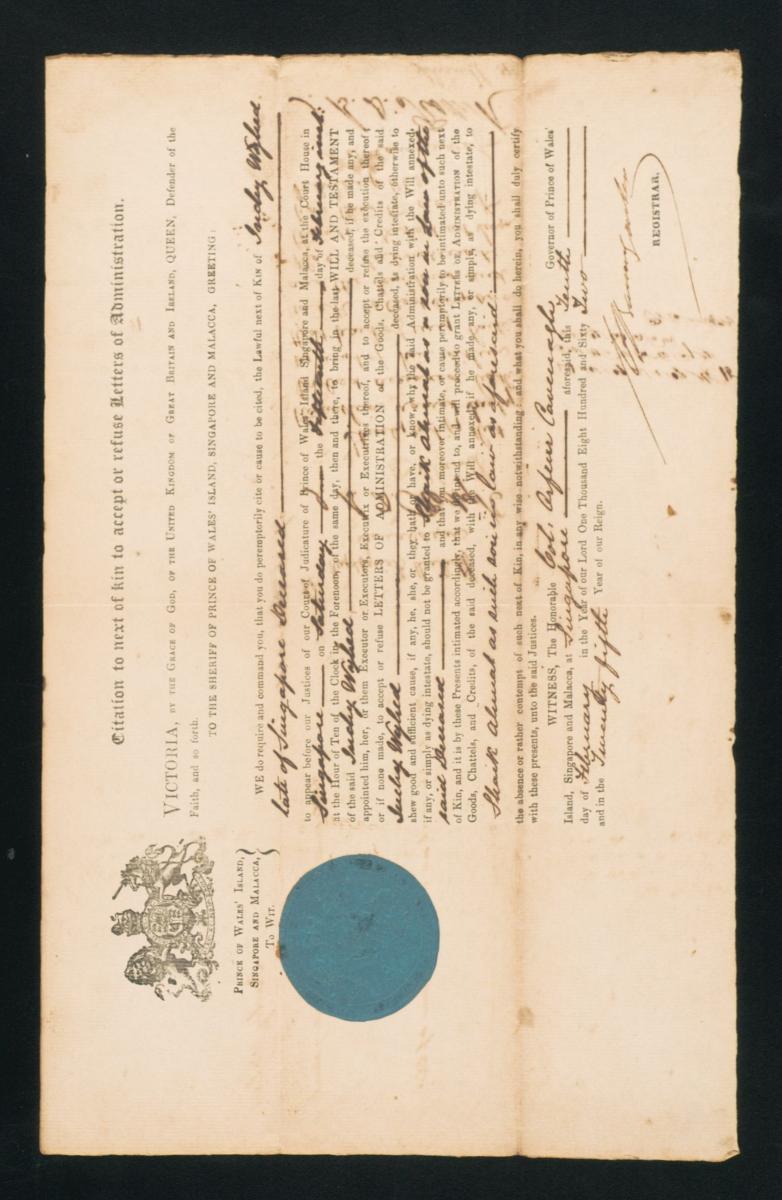 Citation to next of kin to accept or refuse Letters of Administration.
VICTORIA, BY THE GRACE OF GOD, OF THE UNITED KINGDOM OF GREAT BRITAIN AND IRELAND, QUEEN, Defender of the
Faith, and so forth.
TO THE SHERIFF OF PRINCE OF WALES' ISLAND, SINGAPORE AND MALACCA, GREETING:
PRINCE OF WALES' ISLAND,
SINGAPORE AND MALACCA,
TO WIT.
WE do require and command you, that you do peremptorily cite or cause to be cited, the Lawful next of Kin of Inchy Wyhed
late of Singapore Deceased
to appear before our Justices of our Court of Judicature of Prince of Wales' Island Singapore and Malacca, at the Court House in
Singapore on Saturday the fifteenth day of February inst.
at the Hour of Ten of the Clock in the Forenoon, of the same day, then and there, to bring in the last WILL AND TESTAMENT
of the said Inchy Wyhed deceased, if he made any, and
appointed him, her, or them Executor or Executors, Executrix or Executrixes thereof, and to accept or refuse the execution thereof;
or if none made, to accept or refuse LETTERS OF ADMINISTRATION of the Goods, Chattels and Credits of the said
Inchy Wyhed deceased, as dying intestate, otherwise to
shew good and sufficient cause, if any, he, she, or they hath or have, or know, why the said Administration with the Will annexed,
if any, or simply as dying intestate, should not be granted to Shaik Ahmat as a son in law of the
said Deceased and that you moreover intimate, or cause peremptorily to be intimated unto such next
of Kin, and it is by these Presents intimated accordingly, that we intend to, and will proceed to grant LETTERS OF ADMINISTRATION of the
Goods, Chattels, and Credits, of the said deceased, with the Will annexed if he made any, or simply, as dying intestate, to
Shaik Ahmat as such son in law as aforesaid
the absence or rather contempt of such next of Kin, in any wise notwithstanding: and what you shall do herein, you shall duly certify
with these presents, unto the said Justices.
WITNESS, The Honorable Col. Orfeur Cavenagh Governor of Prince of Wales'
Island, Singapore and Malacca, at Singapore aforesaid, this Tenth
day of February in the Year of our Lord One Thousand Eight Hundred and Sixty Two
and in the Twenty fifth Year of our Reign.
REGISTRAR.